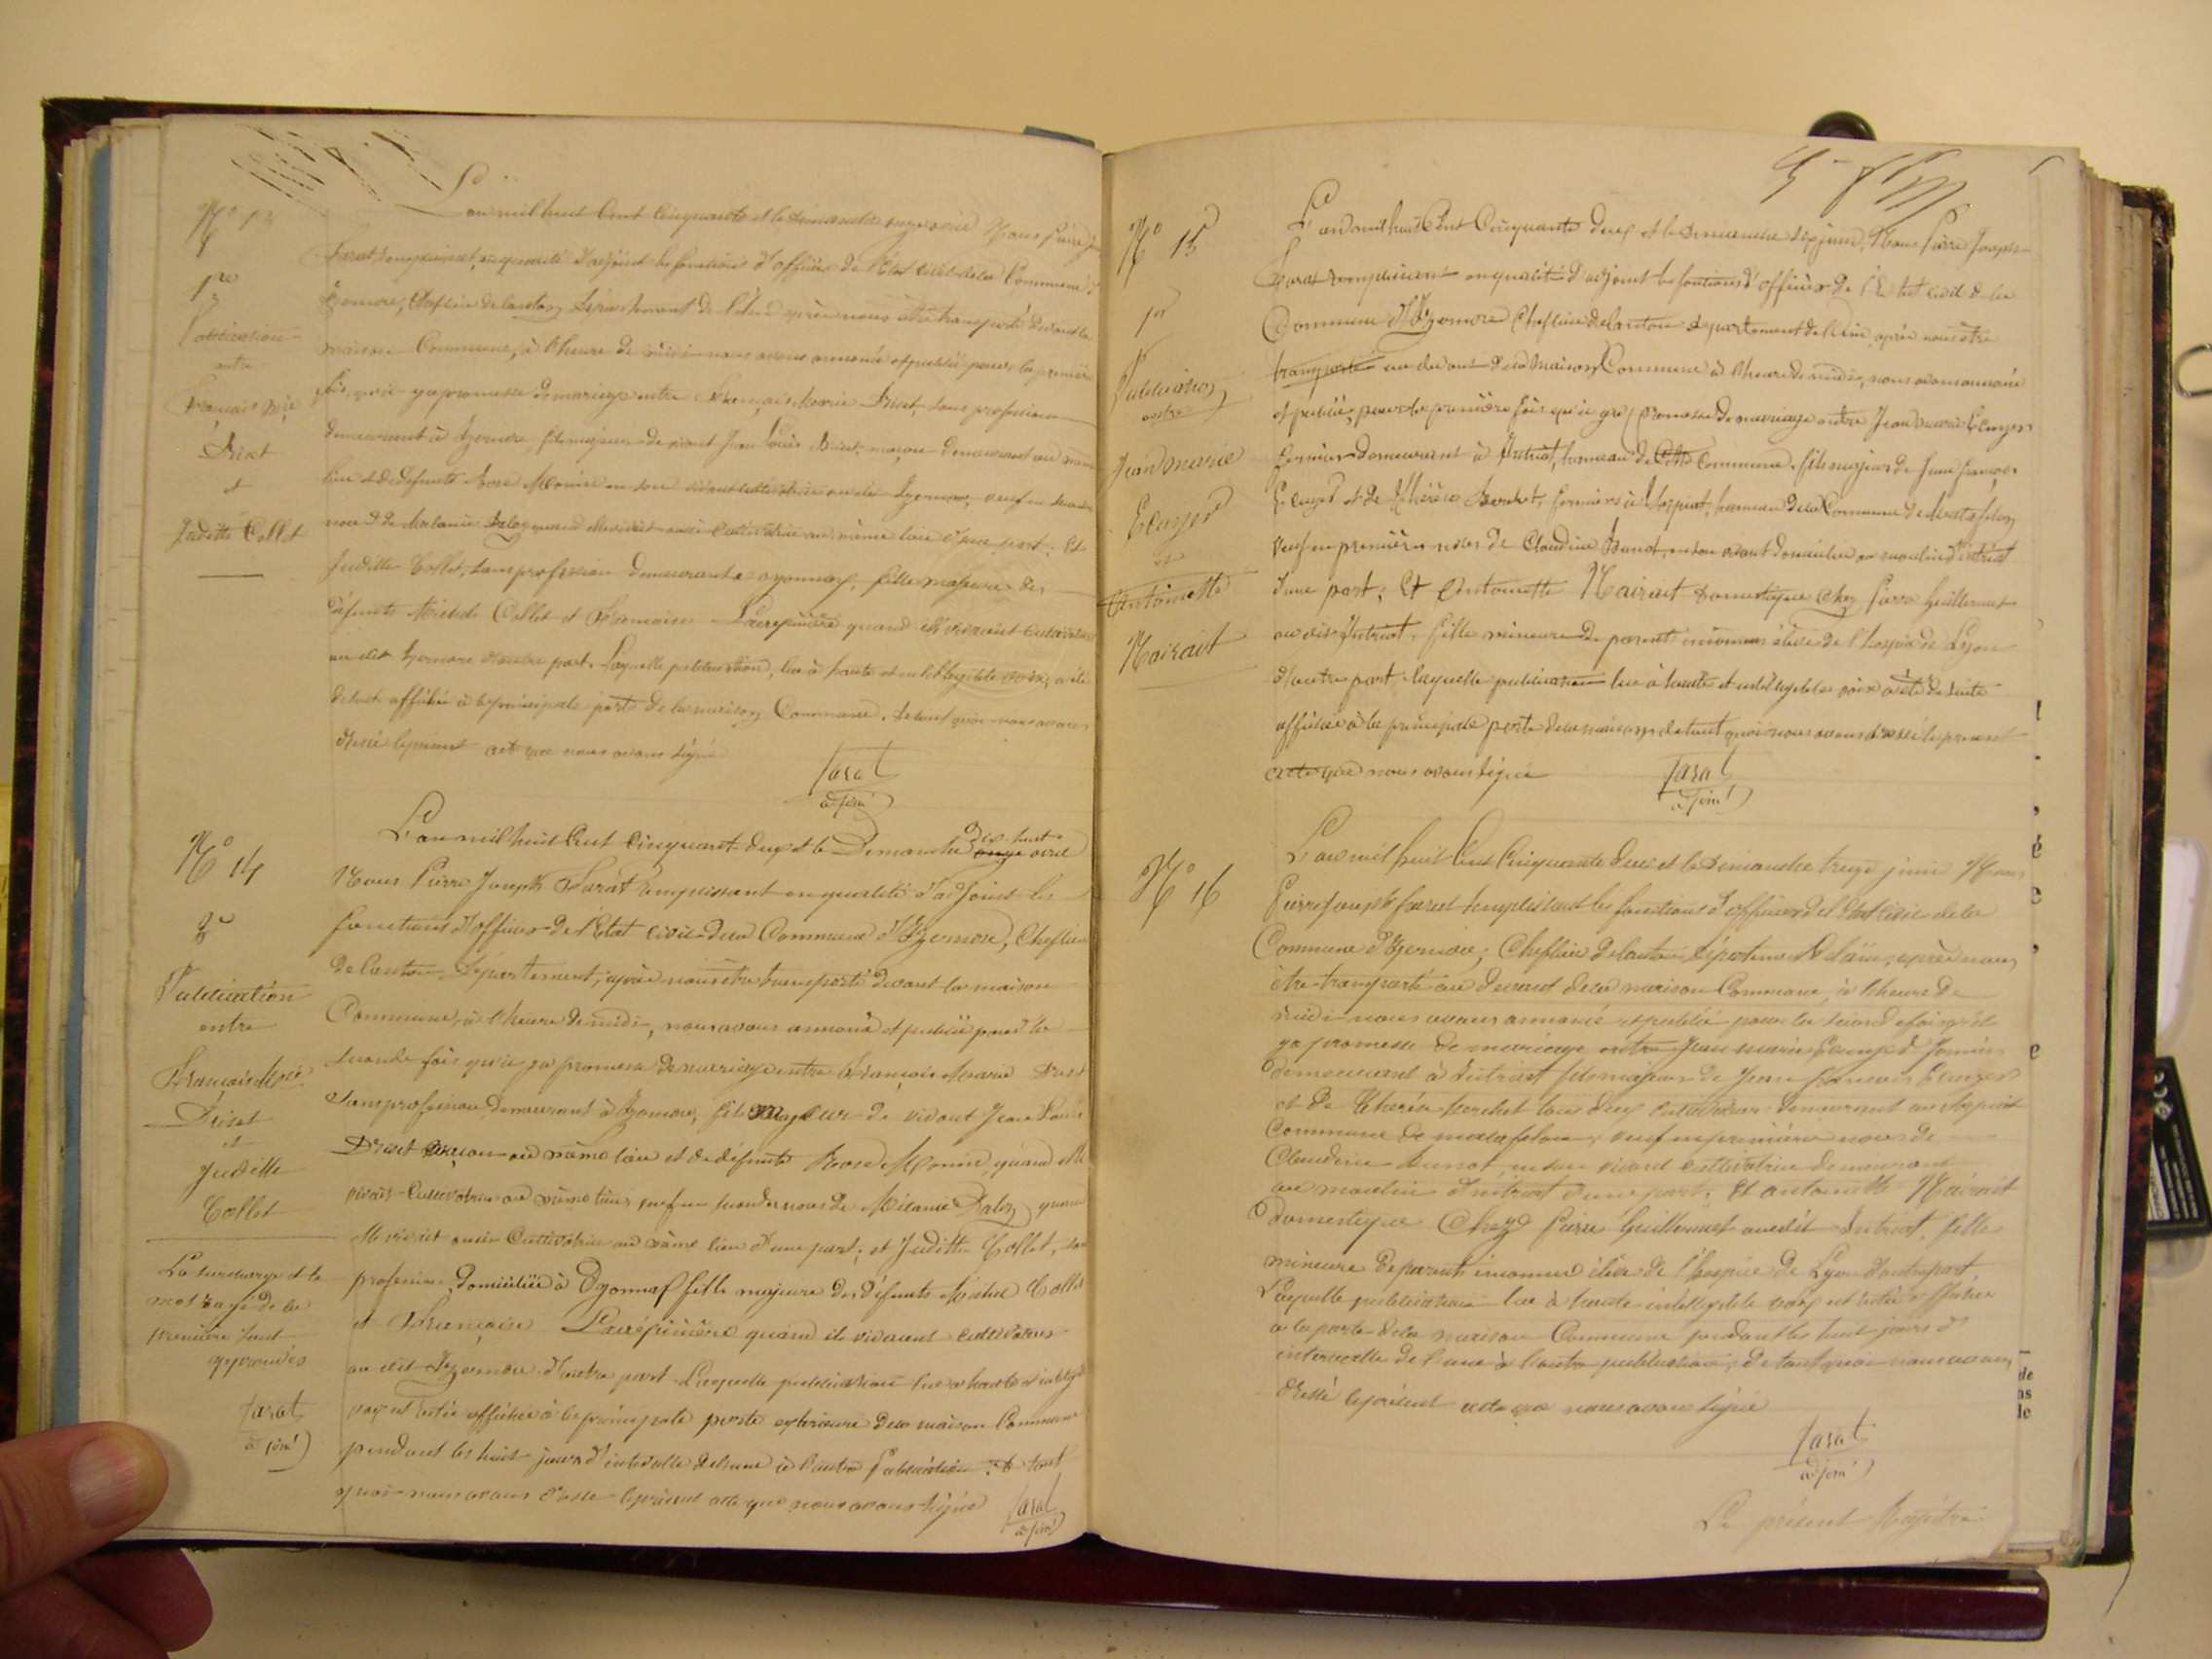 N° 13
1re
Publication
entre
François Mie
Drset
et
Juditte Collet
L'an mil huit Cent Cinquante et le dimanche onze avril Nous Pierre J
Sarat remplissant en qualité d'adjoint les fonctions d'officier de l'Etat Civil de la Commune d'
Izernore, Cheflieu de Canton Département de l'Ain après nous être transporté devant la
maison Commune, à l'heure de midi nous avons annoncé et publié pour la première
fois, qu'il y a promesse de mariage entre François Marie sans profession
demeurant à Izernore, fils majeur de vivant Jean Louis maçon demeurant au même
lieu et de défunte Rose Monin en son vivant cultivatrice au dit Izernore, veuf en secondes
noces de Melanie quand elle vivait aussi Cultivatrice au même lieu d'une part; Et
Juditte Collet, sans profession demeurant a oyonnax, fille majeure des
défunts Michel Collet et Françoise quand ils vivaient Cultivateurs
au dit Izernore d'autre part. Laquelle publication, lue à haute et intelligible voix, a été
de suite affichée à la principale porte de la maison Commune. De tout quoi nous avons
dressé le présent acte que nous avons signé
Sarat
adjoint
N° 14
2e
Publication
entre
François Mie
et
Juditte
Collet
La surcharge et le
mot rayé de la
première sont
approuvés
Sarat
adjoint
L'an mil huit Cent Cinquante deux et le Dimanche Dix huit onze avril
Nous Pierre Joseph Sarat remplissant en qualité d'adjoint les
fonctions d'officier de l'Etat civil de la Commune d'Izernore, Cheflieu
de Canton Département, après nous être transporté devant la maison
Commune, à l'heure de midi, nous avons annoncé et publié pour la
seconde fois qu'il y a promesse de mariage entre François Marie
sans profession demeurant à Izernore, fils majeur de vivant Jean Louis
maçon au même lieu et de défunte Rose Monin, quand elle
vivait Cultivatrice au même lieu, veuf en secondes noces de Mélanie quand
elle vivait aussi Cultivatrice au même lieu d'une part; et Juditte Collet, sans
profession domiciliée à Oyonnax fille majeure des défunts Michel Collet
et Françoise quand ils vivaient cultivateurs
au dit Izernore d'autre part. Laquelle publication lue a haute et intelligible
voix est restée affichée à la principale porte extérieure de la maison Commune
pendant les huit jours d'intervalle de l'une à l'autre Publication. De tout
quoi nous avons dressé le présent acte que nous avons signé
Sarat
adjoint
N° 15
1re
Publication
entre
Jean marie
et
Antoinette
Mairait
L'an mil huit Cent Cinquante deux et le Dimanche six juin, Nous Pierre Joseph
Sarat remplissant en qualité d'adjoint les fonctions d'officier de l'Etat civil de la
Commune d'Izernore Cheflieu de Canton département de l'Ain, après nous être
transporté au devant de la Maison Commune à l'heure de midi, nous avons annoncé
et publié, pour la première fois qu'il y a promesse de mariage entre Jean marie
fermier demeurant à Intriat, hameau de Cette Commune, fils majeur de Jean françois
et de Thérèse fermiers à hameau de la Commune de Matafelon
veuf en premières noces de Claudine en son vivant domiciliée au moulin d'Intriat
d'une part; Et Antoinette Mairait Domestique chez Pierre Guillermet
au dit Intriat, fille mineure de parents inconnus élève de l'hospice de Lyon
d'autre part, laquelle publication lue à haute et intelligible voix a été de suite
affichée à la principale porte de la maison de tout quoi nous avons dressé le présent
acte que nous avons signé
Sarat
adjoint
N° 16
L'an mil huit Cent Cinquante deux et le Dimanche treize juin Nous
Pierre Joseph Sarat remplissant les fonctions d'officier de l'Etat Civil de la
Commune d'Izernore, Cheflieu de Canton, département de l'ain, après nous
être transporté au devant de la maison Commune, à l'heure de
midi nous avons annoncé et publié pour la seconde fois qu'il
y a promesse de mariage entre Jean marie fermier
demeurant à Intriat fils majeur de Jean françois
et de Thérèse tous deux cultivateurs demeurant au
Commune de matafelon, veuf en premières noces de
Claudine en son vivant cultivatrice demeurant
au moulin d'Intriat d'une part; Et antoinette Mairait
Domestique Chez Pierre Guillermet audit Intriat, fille
mineure de parents inconnus élève de l'hospice de Lyon d'autre part
Laquelle publication lue à haute intelligible voix est restée affichée
a la porte de la maison Commune pendant les huit jours d'
intervalle de l'une à l'autre publication, De tout quoi nous avons
dressé le présent acte que nous avons signé
Sarat
adjoint
Le présent Registre